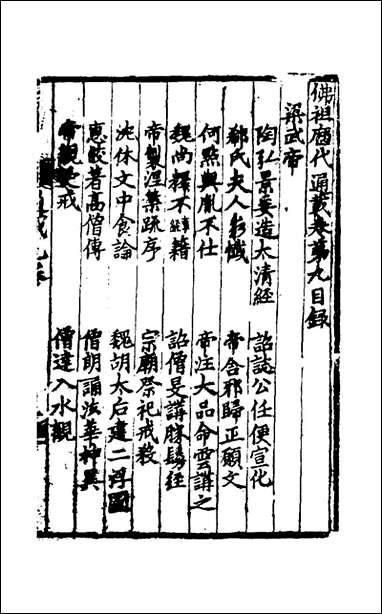 佛祖歷代通載卷第九目錄
梁武帝
陶弘景奏造太清經
詔誌公任便宣化
郗氏夫人彰懺
帝舍邪歸正願文
何點與胤不仕
帝注大品命雲講之
魏尚釋不籍
詔僧旻講勝鬘經
帝製涅槃疏序
宗廟祭祀戒殺
沈休文中食論
魏胡太后建二浮圖
惠皎著高僧傳
僧朗誦法華神異
帝親受戒
僧達入水觀